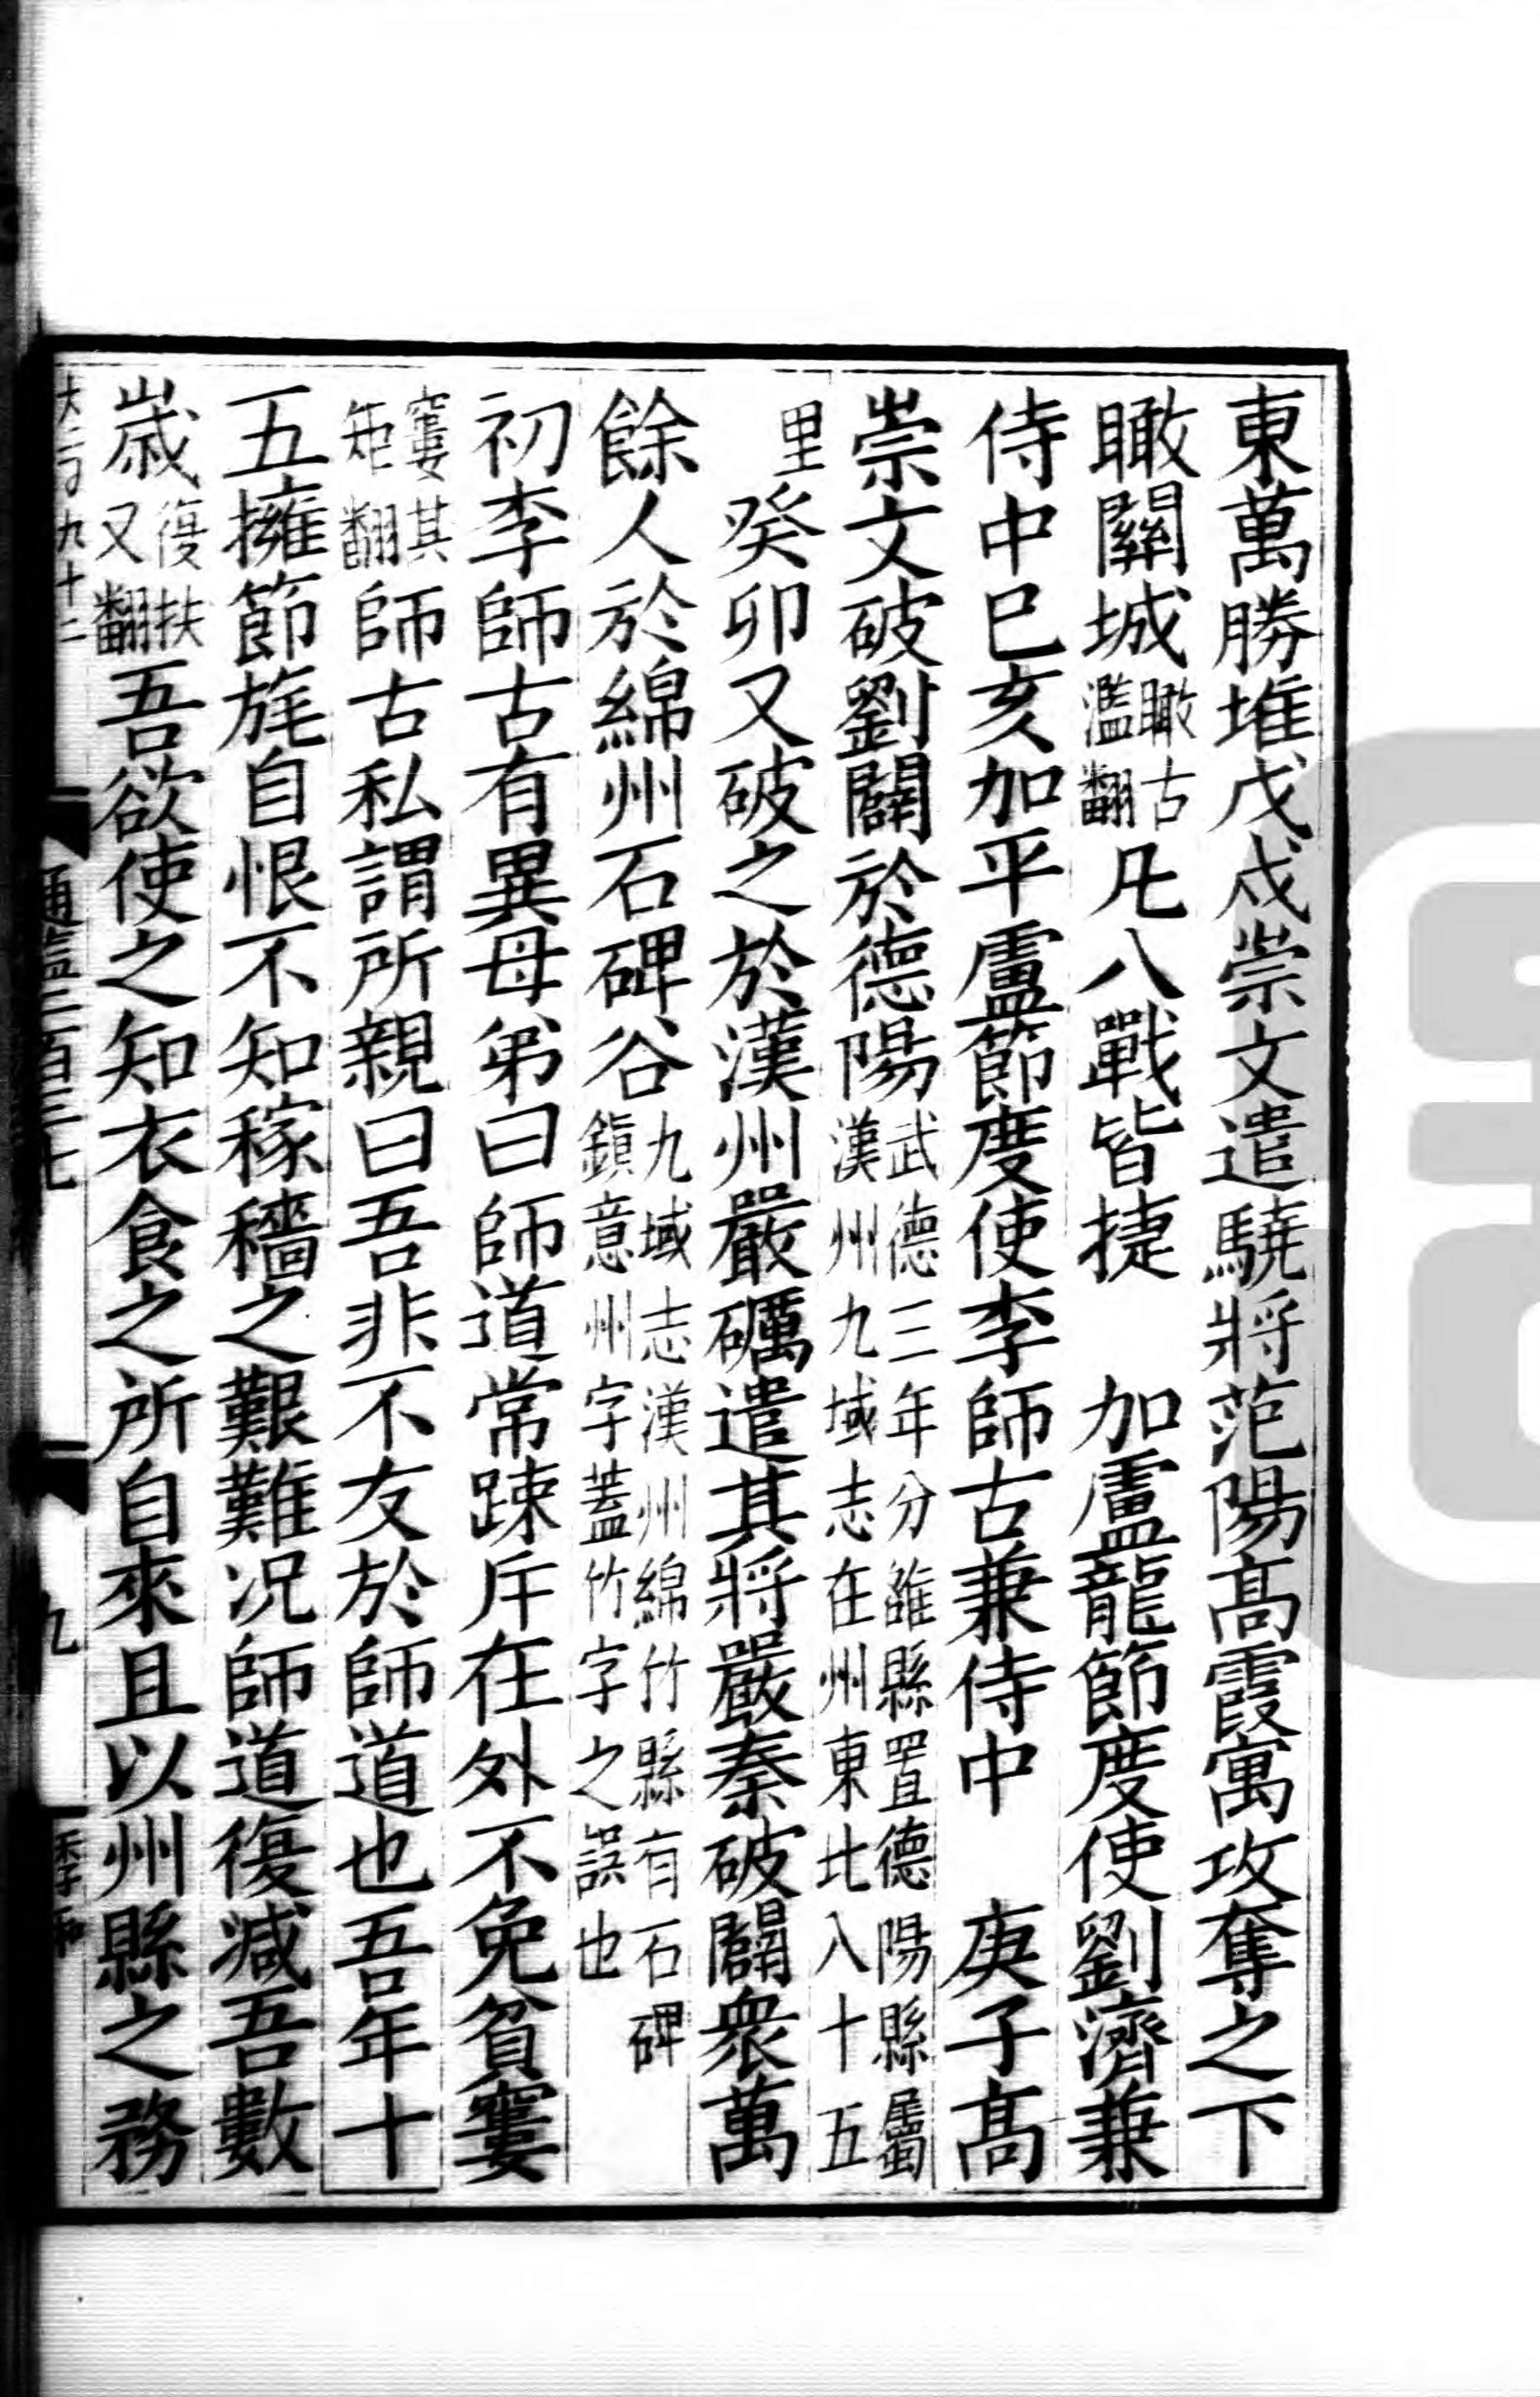 東萬勝堆戊戌崇文遣驍將范陽髙霞寓攻奪之下
瞰關城瞰古濫翻凡八戰皆捷　加盧龍節度使劉濟兼
侍中己亥加平盧節度使李師古兼侍中　庚子髙
崇文破劉闢於德陽武德三年分雒縣置德陽縣屬漢州九域志在州東北八十五
里　癸卯又破之於漢州嚴礪遣其將嚴秦破闢衆萬
餘人於綿州石碑谷九域志漢州綿竹縣有石碑鎮意州字蓋竹字之誤也
初李師古有異母弟曰師道常踈斥在外不免貧窶
窶其矩翻師古私謂所親曰吾非不友於師道也吾年十
五擁節旄自恨不知稼穡之艱難况師道復減吾數
歲復扶又翻吾欲使之知衣食之所自來且以州縣之務
通鑑二百三十七
九